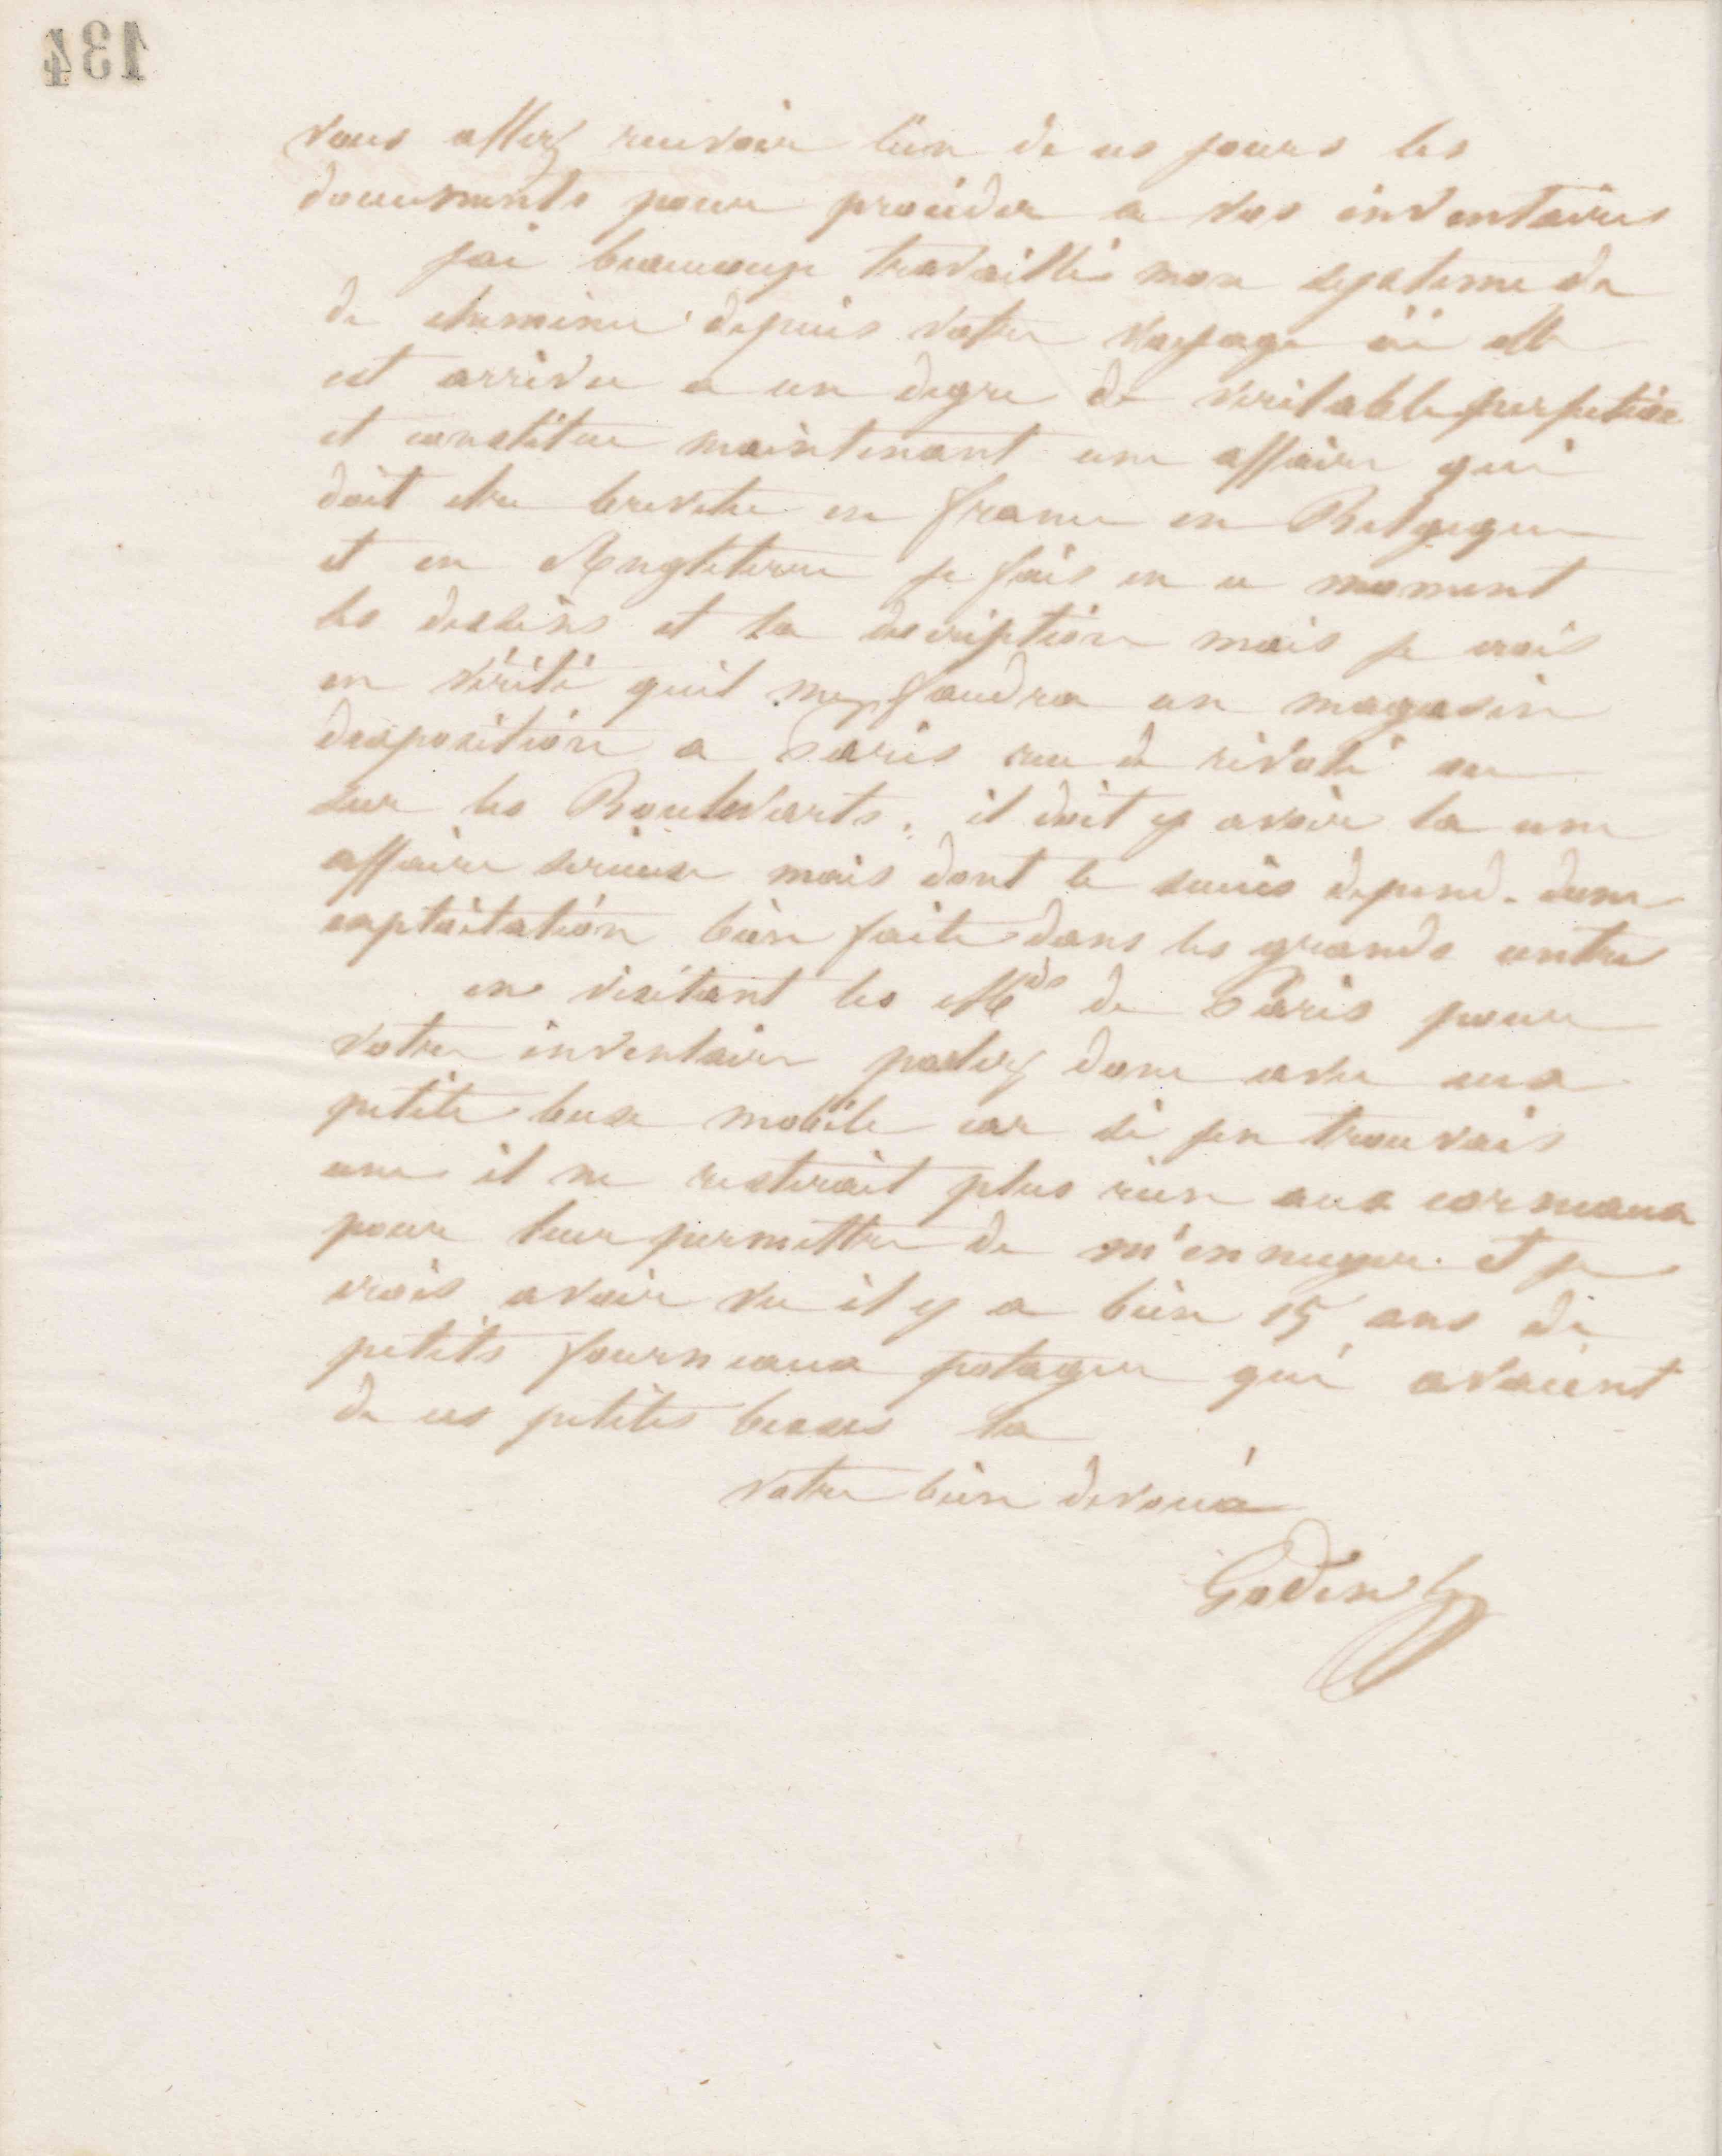 134
vous allez recevoir l'un de ces jours les
documents pour procéder a vos inventaires
j'ai beaucoup travaillé mon systeme de
de cheminee depuis votre voyage ici elle
est arrivee a un degre de veritable perfection
et constitue maintenant une affaire qui
doit etre brevetee en france en Belgique
et en Angleterre je fais en ce moment
les dessins et la description mais je crois
en vérité quil me faudra un magasin
dexposition a Paris rue de rivoli ou
sur les Boulevarts. il doit y avoir la une
affaire serieuse mais dont le succès depend dune
exploitation bien faite dans les grands centres
en visitant les Mds de Paris pour
votre inventaire parlez donc avec eux
petite buse mobile car si jen trouvais
une il ne resterait plus rien aux
pour leur permettre de m'ennuyer. et je
crois avoir vu il y a bien 15 ans de
petits fourneaux potager qui avaient
de ces petites buses la
votre bien devoué
Godin